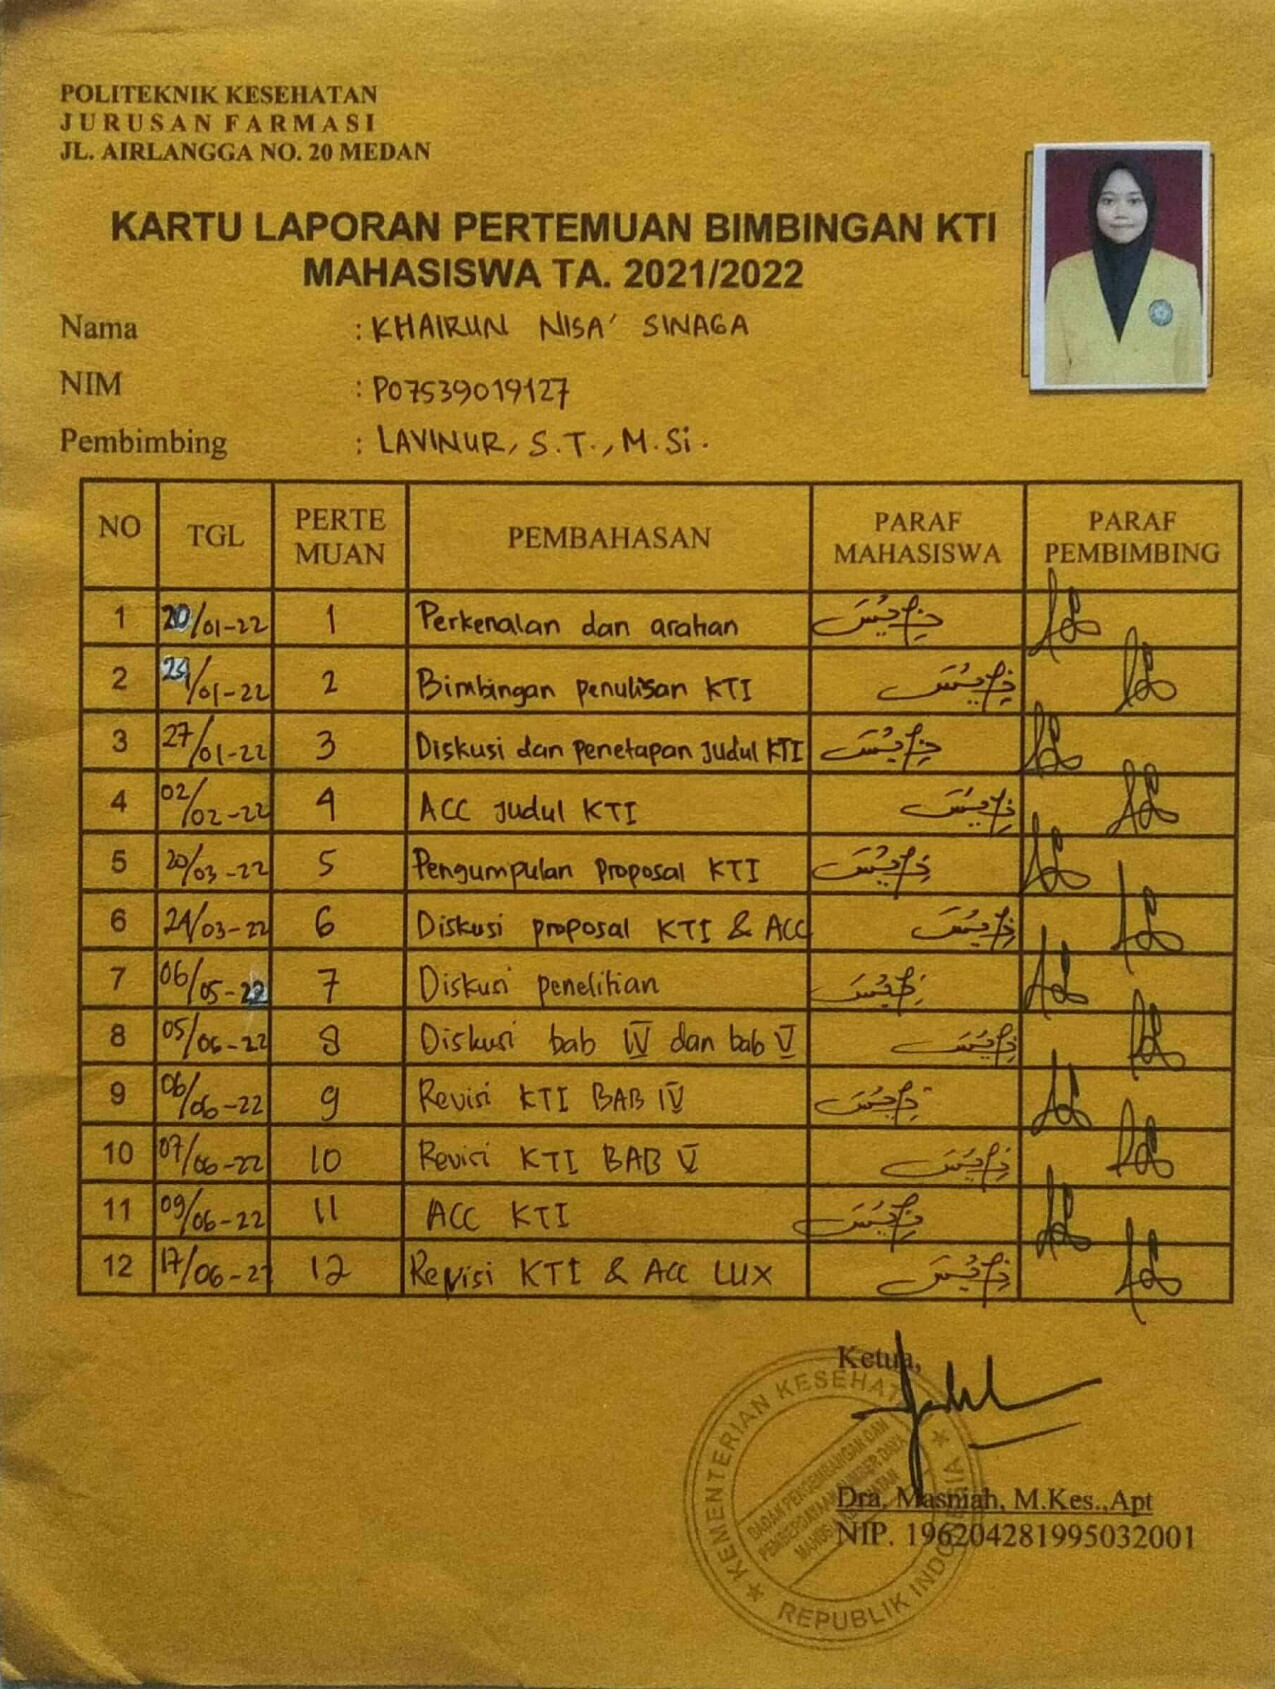 POLITEKNIK KESEHATAN
JURUSAN FARMASI
JL. AIRLANGGA NO. 20 MEDAN
KARTU LAPORAN PERTEMUAN BIMBINGAN KTI
MAHASISWA TA. 2021/2022
Nama : KHAIRUN NISA' SINAGA
NIM : P07539019127
Pembimbing : LAVINUR, S.T., M.Si.
NO TGL PERTE MUAN PEMBAHASAN PARAF MAHASISWA PARAF PEMBIMBING
1 20/01-22 1 Perkenalan dan arahan
2 /01-22 2 Bimbingan penulisan KTI
3 27/01-22 3 Diskusi dan penetapan judul KTI
4 02/02-22 4 ACC judul KTI
5 20/03-22 5 Pengumpulan proposal KTI
6 24/03-22 6 Diskusi proposal KTI & ACC
7 06/05-22 7 Diskusi penelitian
8 05/06-22 8 Diskusi bab IV dan bab V
9 06/06-22 9 Revisi KTI BAB IV
10 07/06-22 10 Revisi KTI BAB V
11 09/06-22 11 ACC KTI
12 17/06-22 12 Revisi KTI & ACC LUX
Ketua,
KEMENTERIAN KESEHATAN
BADAN PENGEMBANGAN DAN
PEMBERDAYAAN SUMBER DAYA
MANUSIA KESEHATAN
REPUBLIK INDONESIA
Dra. Masniah, M.Kes.,Apt
NIP. 196204281995032001